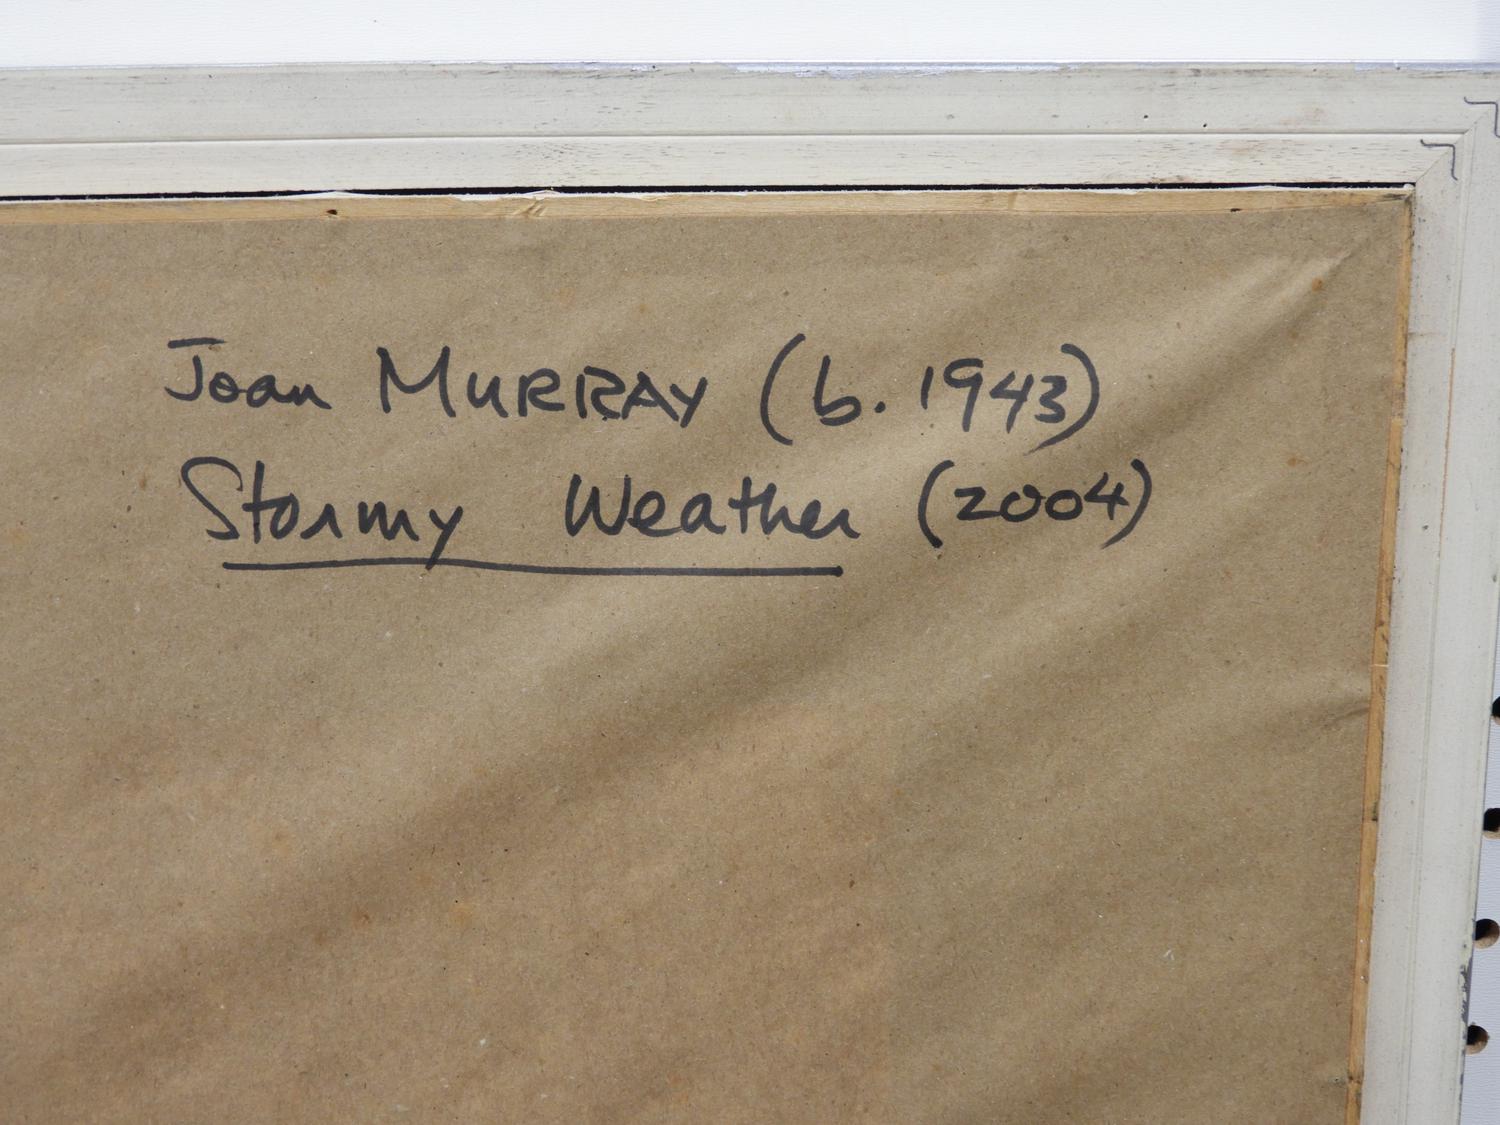 Joan MURRAY (b. 1943)
Stormy Weather (2004)